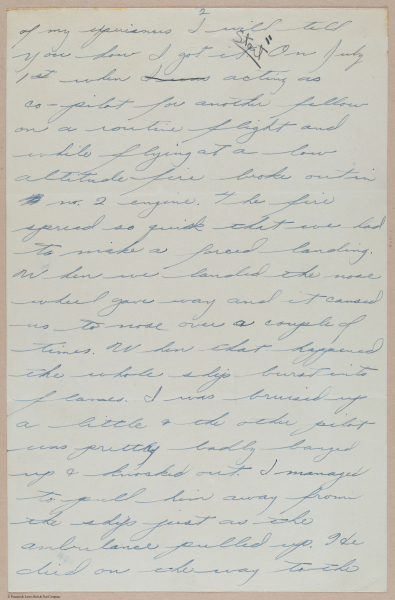 2
of my experiences I will tell
you how I got it. Start" On July
1st when I was acting as
co-pilot for another fellow
on a routine flight and
while flying at a low
altitude fire broke out in
no. 2 engine. The fire
spread so quick that we had
to make a forced landing.
When we landed the nose
wheel gave way and it caused
us to nose over a couple of
times. When that happened
the whole ship burst into
flames. I was bruised up
a little & the other pilot
was pretty badly banged
up & knocked out. I managed
to pull him away from
the ship just as the
ambulance pulled up. He
died on the way to the